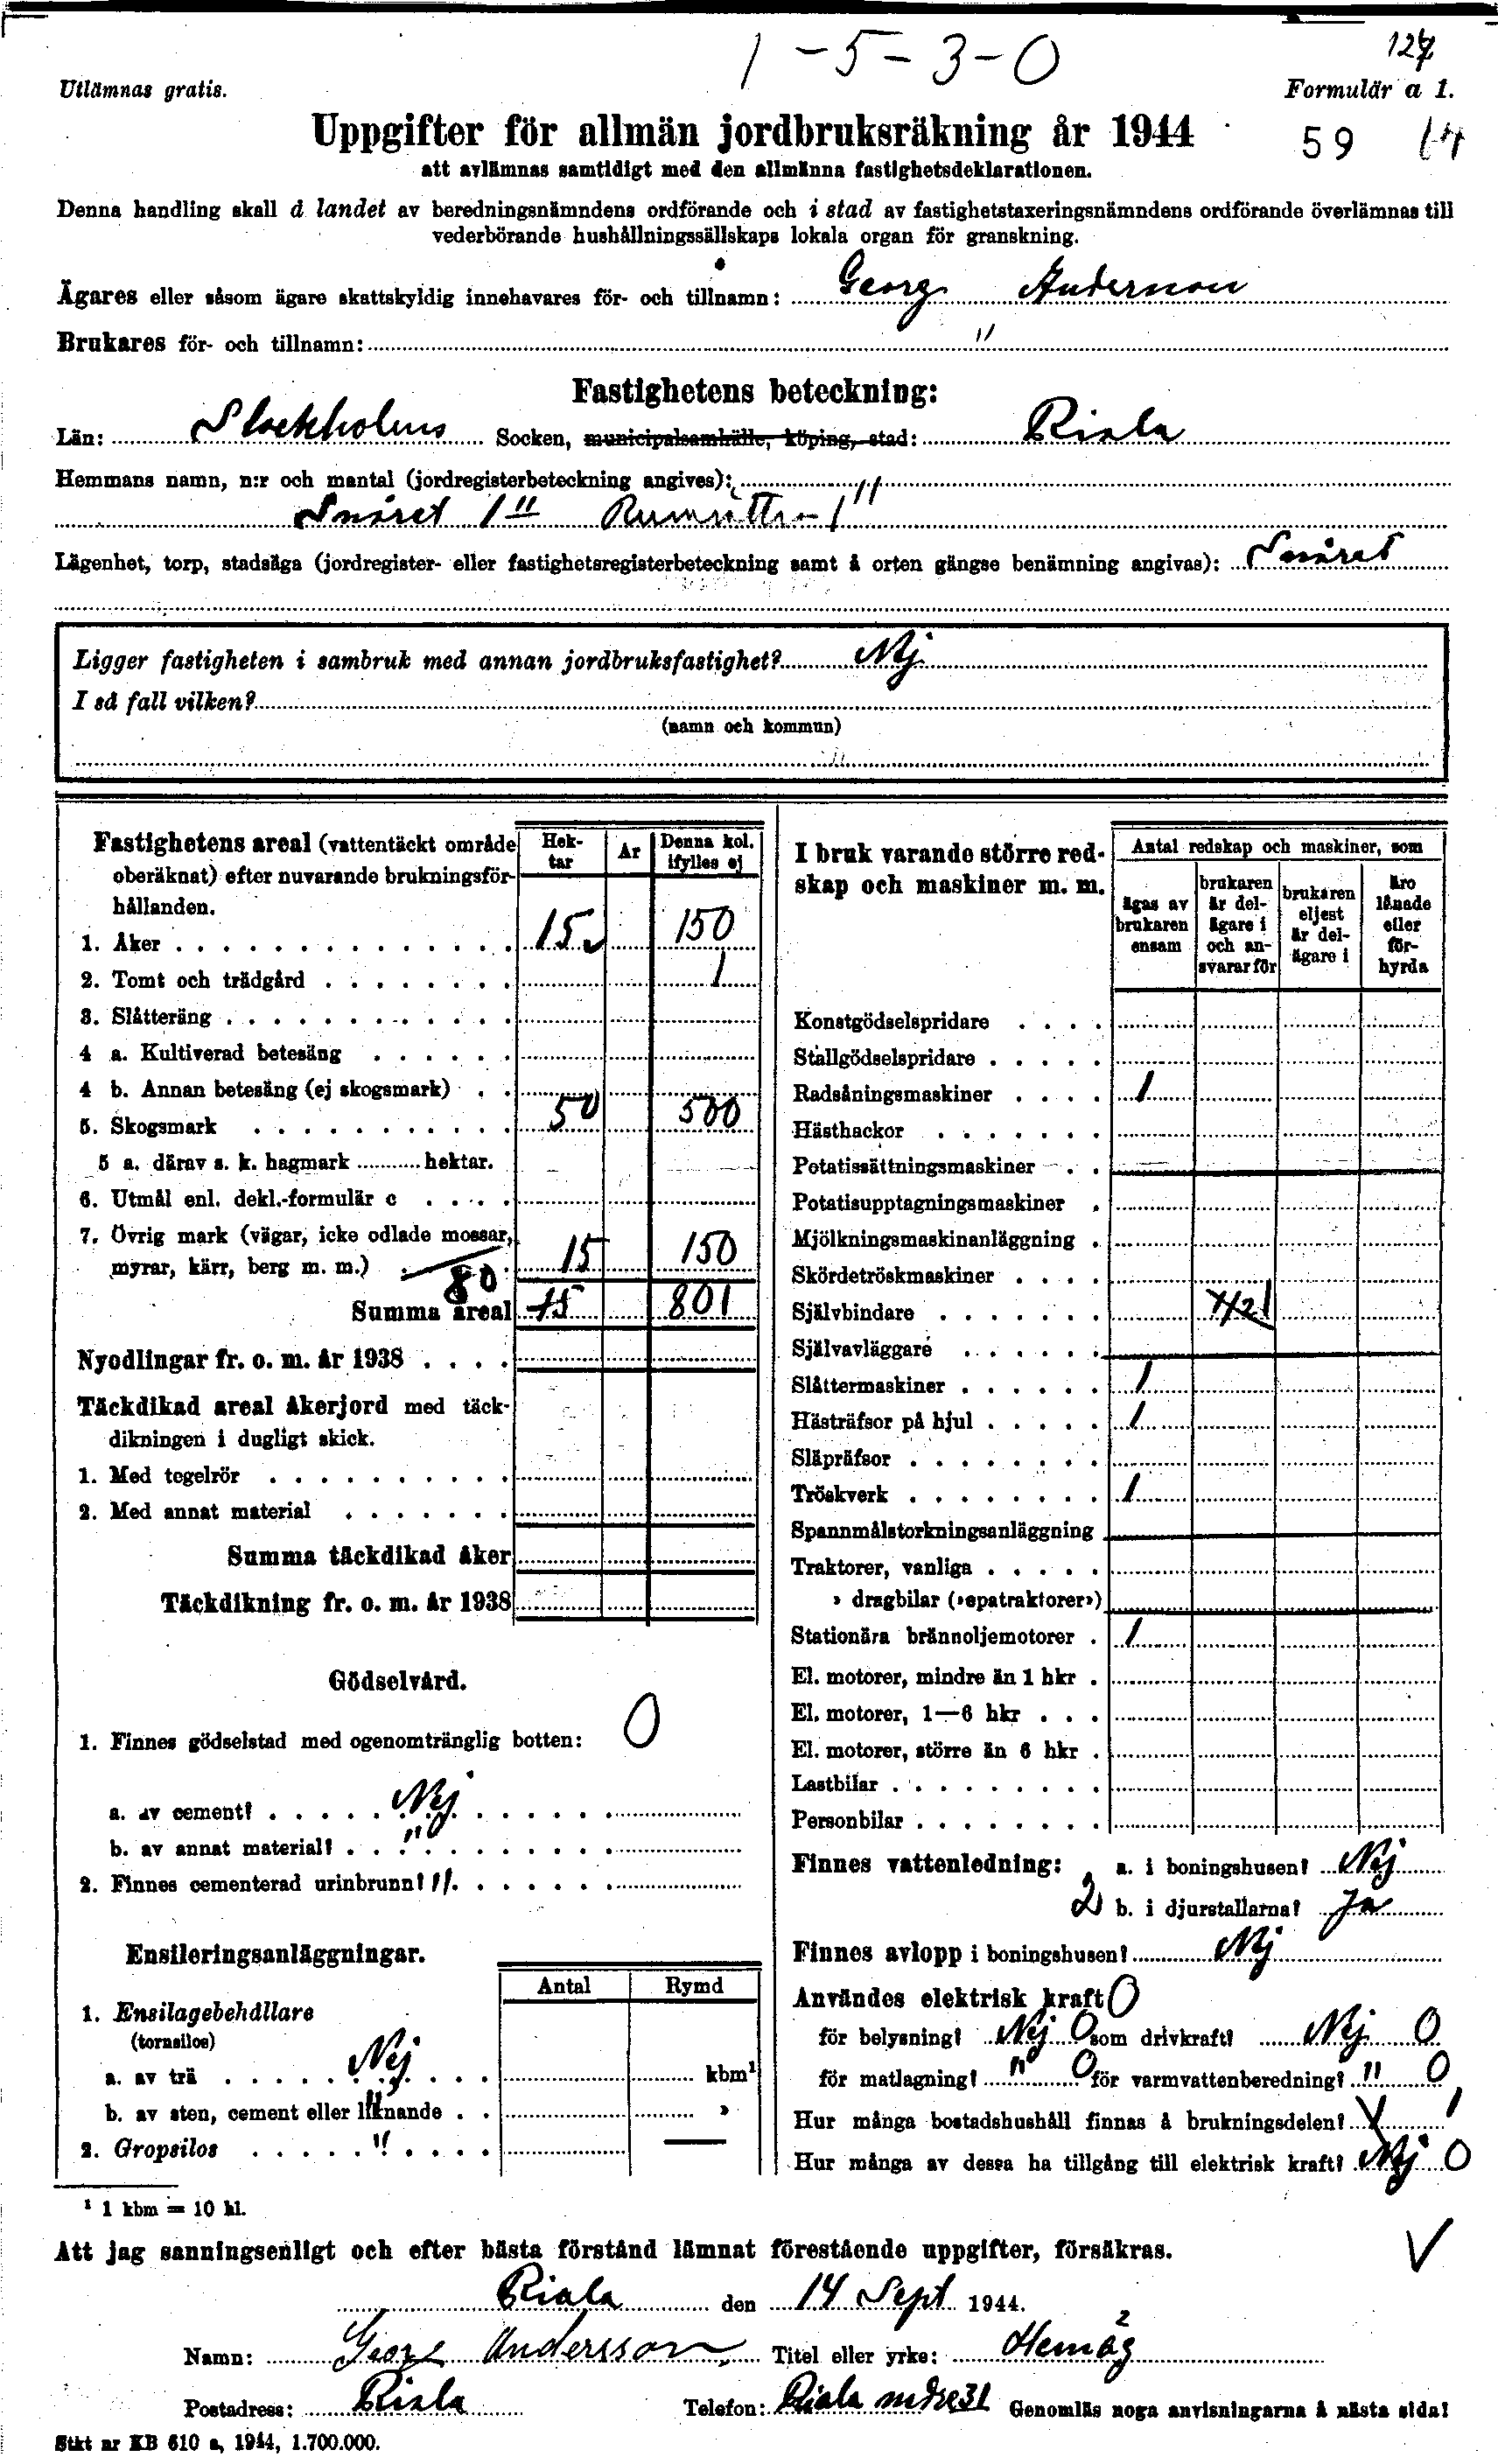 1-5-3-0
127
Utlämnas gratis.
Formulär a 1.
Uppgifter för allmän jordbruksräkning år 1944
59 14
att avlämnas samtidigt med den allmänna fastighetsdeklarationen.
Denna handling skall å landet av beredningsnämndens ordförande och i stad av fastighetstaxeringsnämndens ordförande överlämnas till
vederbörande hushållningssällskaps lokala organ för granskning.
Ägares eller såsom ägare skattskyldig innehavares för- och tillnamn: Georg Andersson
Brukares för- och tillnamn: "
Fastighetens beteckning:
Län: Stockholms Socken, municipalsamhälle, köping, stad: Riala
Hemmans namn, n:r och mantal (jordregisterbeteckning angives):
Snäret 1"
Lägenhet, torp, stadsäga (jordregister- eller fastighetsregisterbeteckning samt å orten gängse benämning angivas): Snäret
Ligger fastigheten i sambruk med annan jordbruksfastighet? Nej
I så fall vilken?
(namn och kommun)
Fastighetens areal (vattentäckt område oberäknat) efter nuvarande brukningsförhållanden.
Hektar Ar Denna kol. ifylles ej
1. Åker 15 150
2. Tomt och trädgård 1
3. Slåtteräng
4 a. Kultiverad betesäng
4 b. Annan betesäng (ej skogsmark)
5. Skogsmark 50 500
5 a. därav s. k. hagmark hektar.
6. Utmål enl. dekl.-formulär c
7. Övrig mark (vägar, icke odlade mossar,
myrar, kärr, berg m. m.) 15 150
80
Summa areal 15 801
Nyodlingar fr. o. m. år 1938
Täckdikad areal åkerjord med täck-
dikningen i dugligt skick.
1. Med tegelrör
2. Med annat material
Summa täckdikad åker
Täckdikning fr. o. m. år 1938
Gödselvård.
1. Finnes gödselstad med ogenomtränglig botten: 0
a. av cement? Nej
b. av annat material? "
2. Finnes cementerad urinbrunn? "
Ensileringsanläggningar.
Antal Rymd
1. Ensilagebehållare
(tornsilos)
a. av trä Nej kbm¹
b. av sten, cement eller liknande " »
2. Gropsilos "
¹ 1 kbm = 10 hl.
I bruk varande större red-
skap och maskiner m. m.
Antal redskap och maskiner, som
ägas av brukaren ensam
brukaren är delägare i och ansvarar för
brukaren eljest är delägare i
äro lånade eller förhyrda
Konstgödselspridare
Stallgödselspridare
Radsåningsmaskiner 1
Hästhackor
Potatissättningsmaskiner
Potatisupptagningsmaskiner
Mjölkningsmaskinanläggning
Skördetröskmaskiner
Självbindare 1/2 1
Självavläggare
Slåttermaskiner 1
Hästräfsor på hjul 1
Släpräfsor
Tröskverk 1
Spannmålstorkningsanläggning
Traktorer, vanliga
» dragbilar (»epatraktorer»)
Stationära brännoljemotorer 1
El. motorer, mindre än 1 hkr
El. motorer, 1—6 hkr
El. motorer, större än 6 hkr
Lastbilar
Personbilar
Finnes vattenledning: a. i boningshusen? Nej
2 b. i djurstallarna? Ja
Finnes avlopp i boningshusen? Nej
Användes elektrisk kraft 0
för belysning? Nej 0 som drivkraft? Nej 0
för matlagning? " 0 för varmvattenberedning? " 0
Hur många bostadshushåll finnas å brukningsdelen? 1
Hur många av dessa ha tillgång till elektrisk kraft? Nej 0
Att jag sanningsenligt och efter bästa förstånd lämnat förestående uppgifter, försäkras.
Riala den 14 Sept 1944.
Namn: Georg Andersson Titel eller yrke: Hemäg 2
Postadress: Riala Telefon: Riala 31 Genomläs noga anvisningarna å nästa sida!
Stkt nr KB 610 a, 1944, 1.700.000.